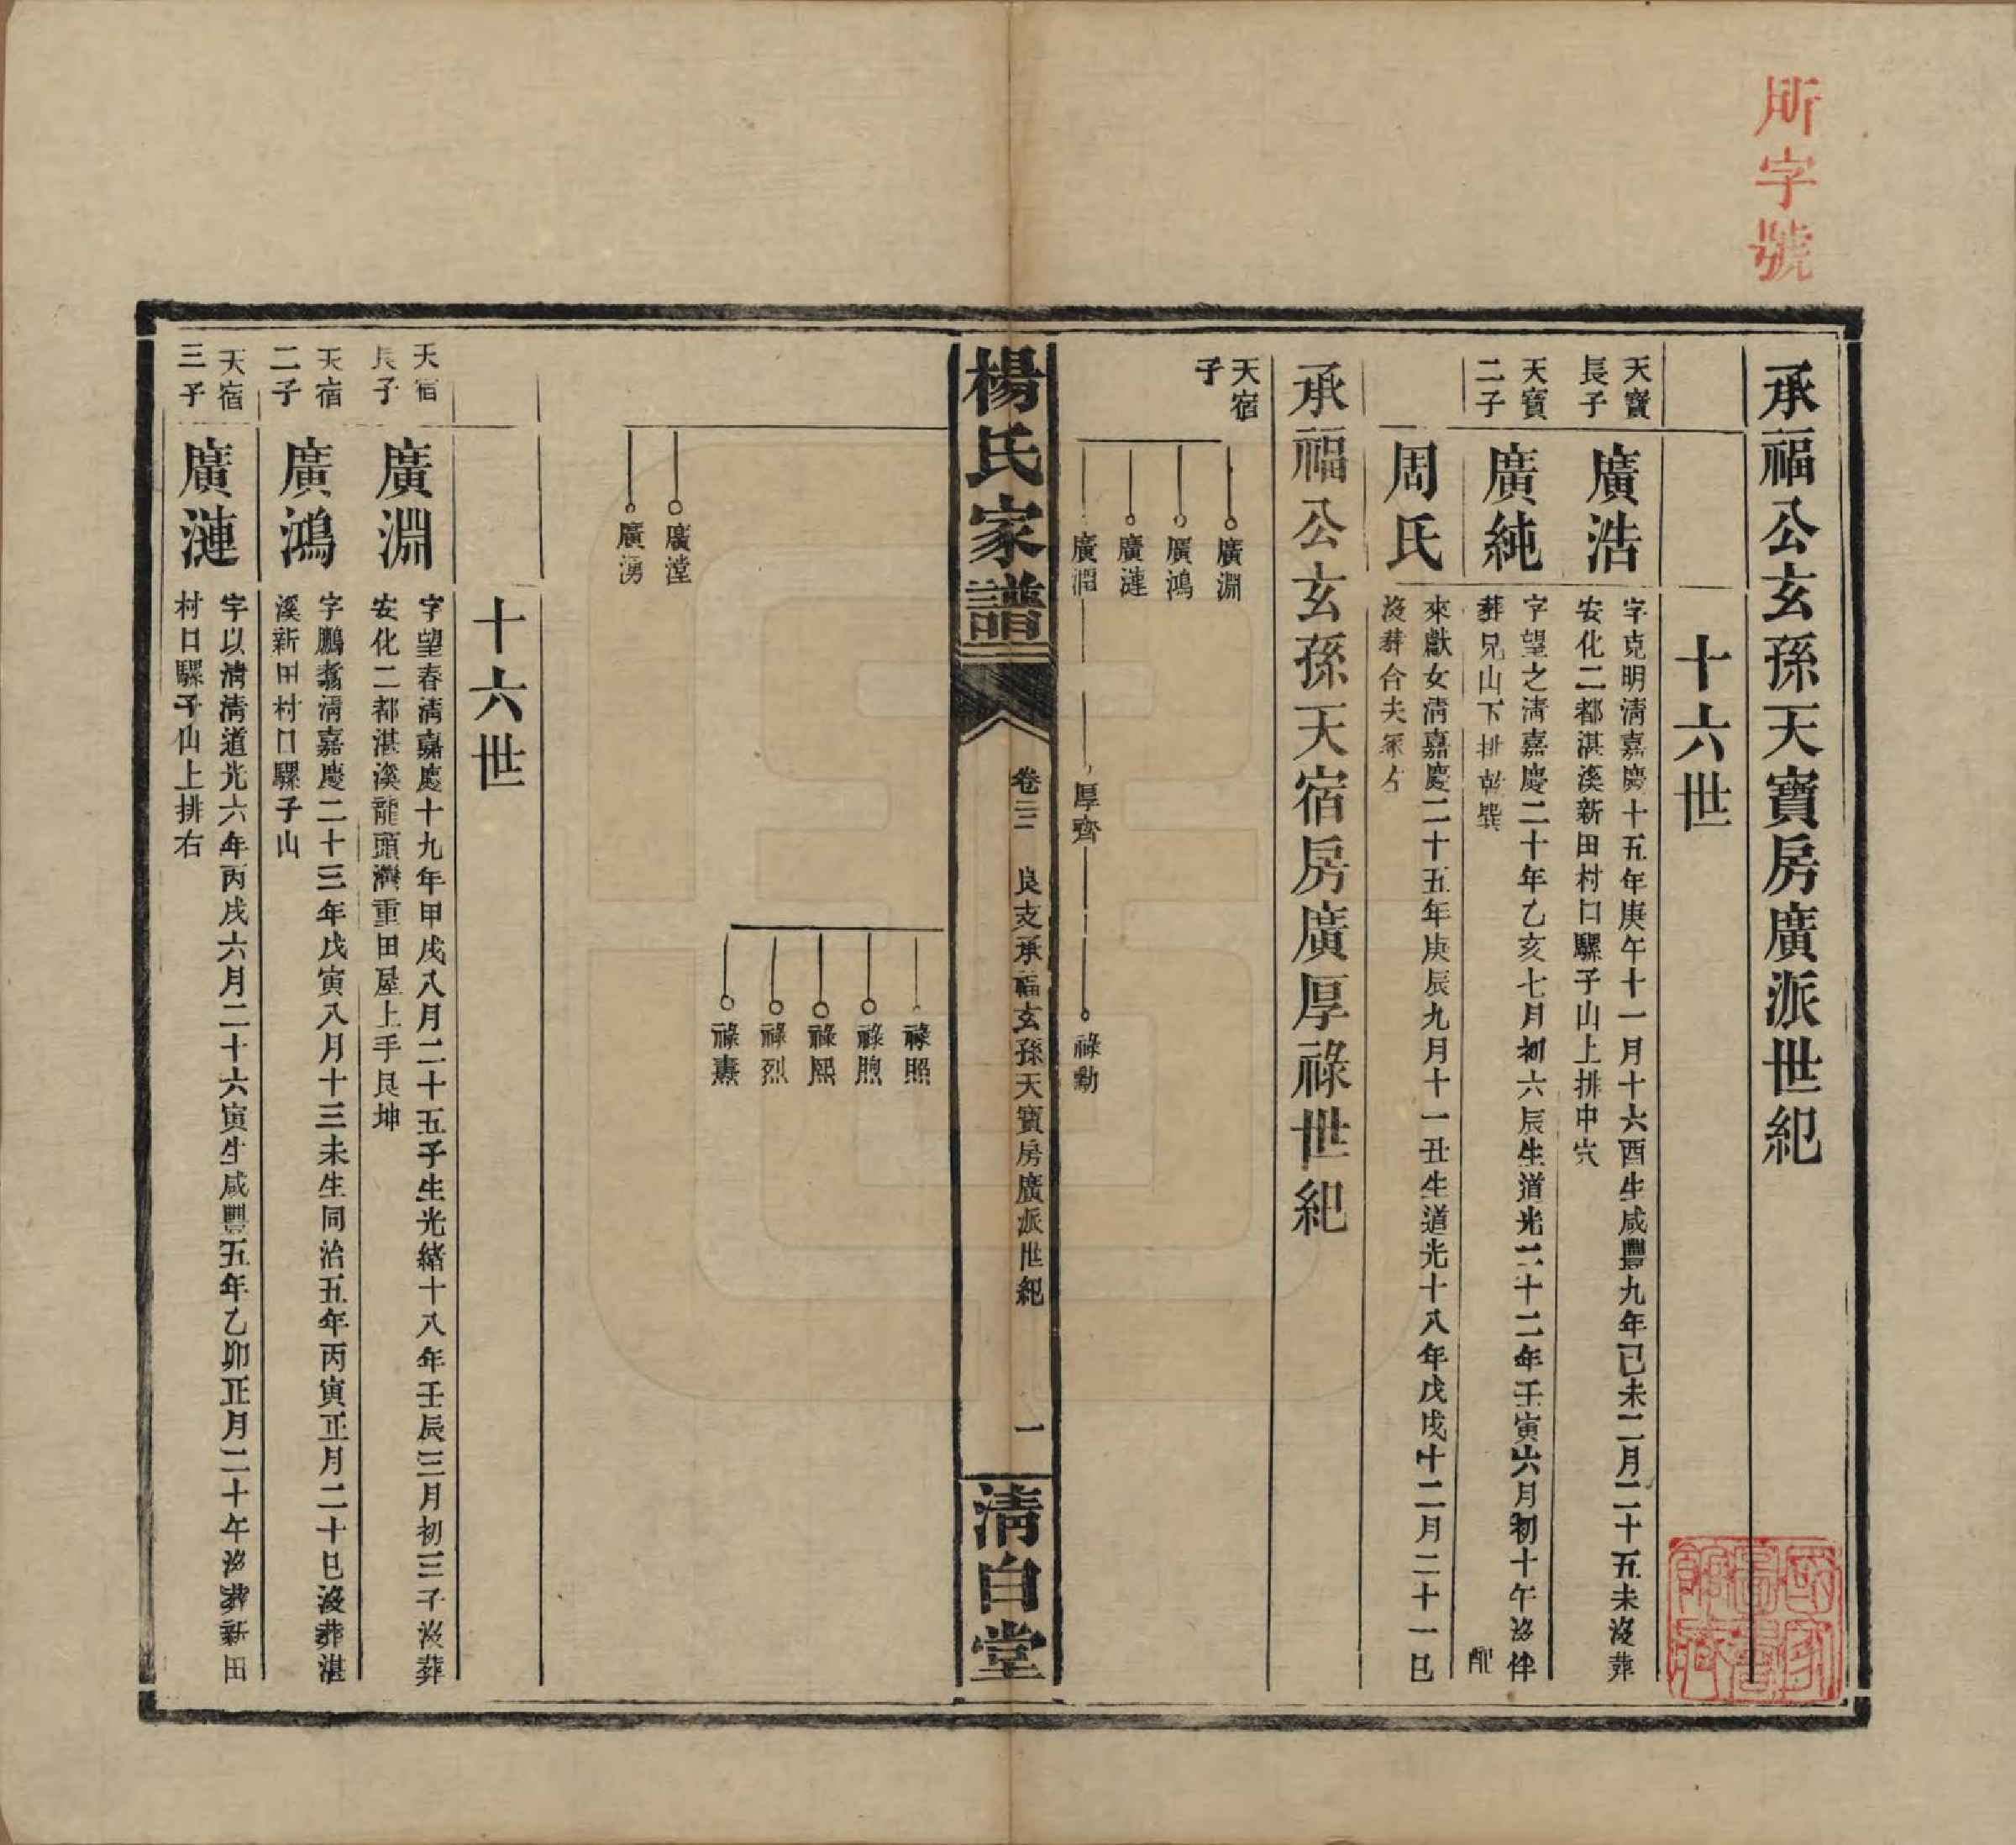 所字號
承福公玄孫天寶房廣派世紀
十六世
天寶
長子
廣浩
字克明清嘉慶十五年庚午十一月十六酉生咸豐九年己未二月二十五未沒葬
安化二都湛溪新田村口騾子山上排中穴
天寶
二子
廣純
字望之清嘉慶二十年乙亥七月初六辰生道光二十二年壬寅六月初十午沒伴
葬兄山下排乾巽
配
周氏
來獻女清嘉慶二十五年庚辰九月十一丑生道光十八年戊戌十二月二十一巳
沒葬合夫冢左
承福公玄孫天宿房廣厚祿世紀
天宿
子
廣淵
廣鴻
廣漣
廣淠
厚齊
祿勳
楊氏家譜
卷三二
良支承福玄孫天寶房廣派世紀
一
清白堂
祿照
祿煦
祿熙
祿烈
祿燾
廣瀅
廣湧
十六世
天宿
長子
廣淵
字望春清嘉慶十九年甲戌八月二十五子生光緒十八年壬辰三月初三子沒葬
安化二都湛溪龍頭灣重田屋上手艮坤
天宿
二子
廣鴻
字鵬翥清嘉慶二十三年戊寅八月十三未生同治五年丙寅正月二十巳沒葬湛
溪新田村口騾子山
天宿
三子
廣漣
字以清清道光六年丙戌六月二十六寅生咸豐五年乙卯正月二十午沒葬新田
村口騾子山上排右